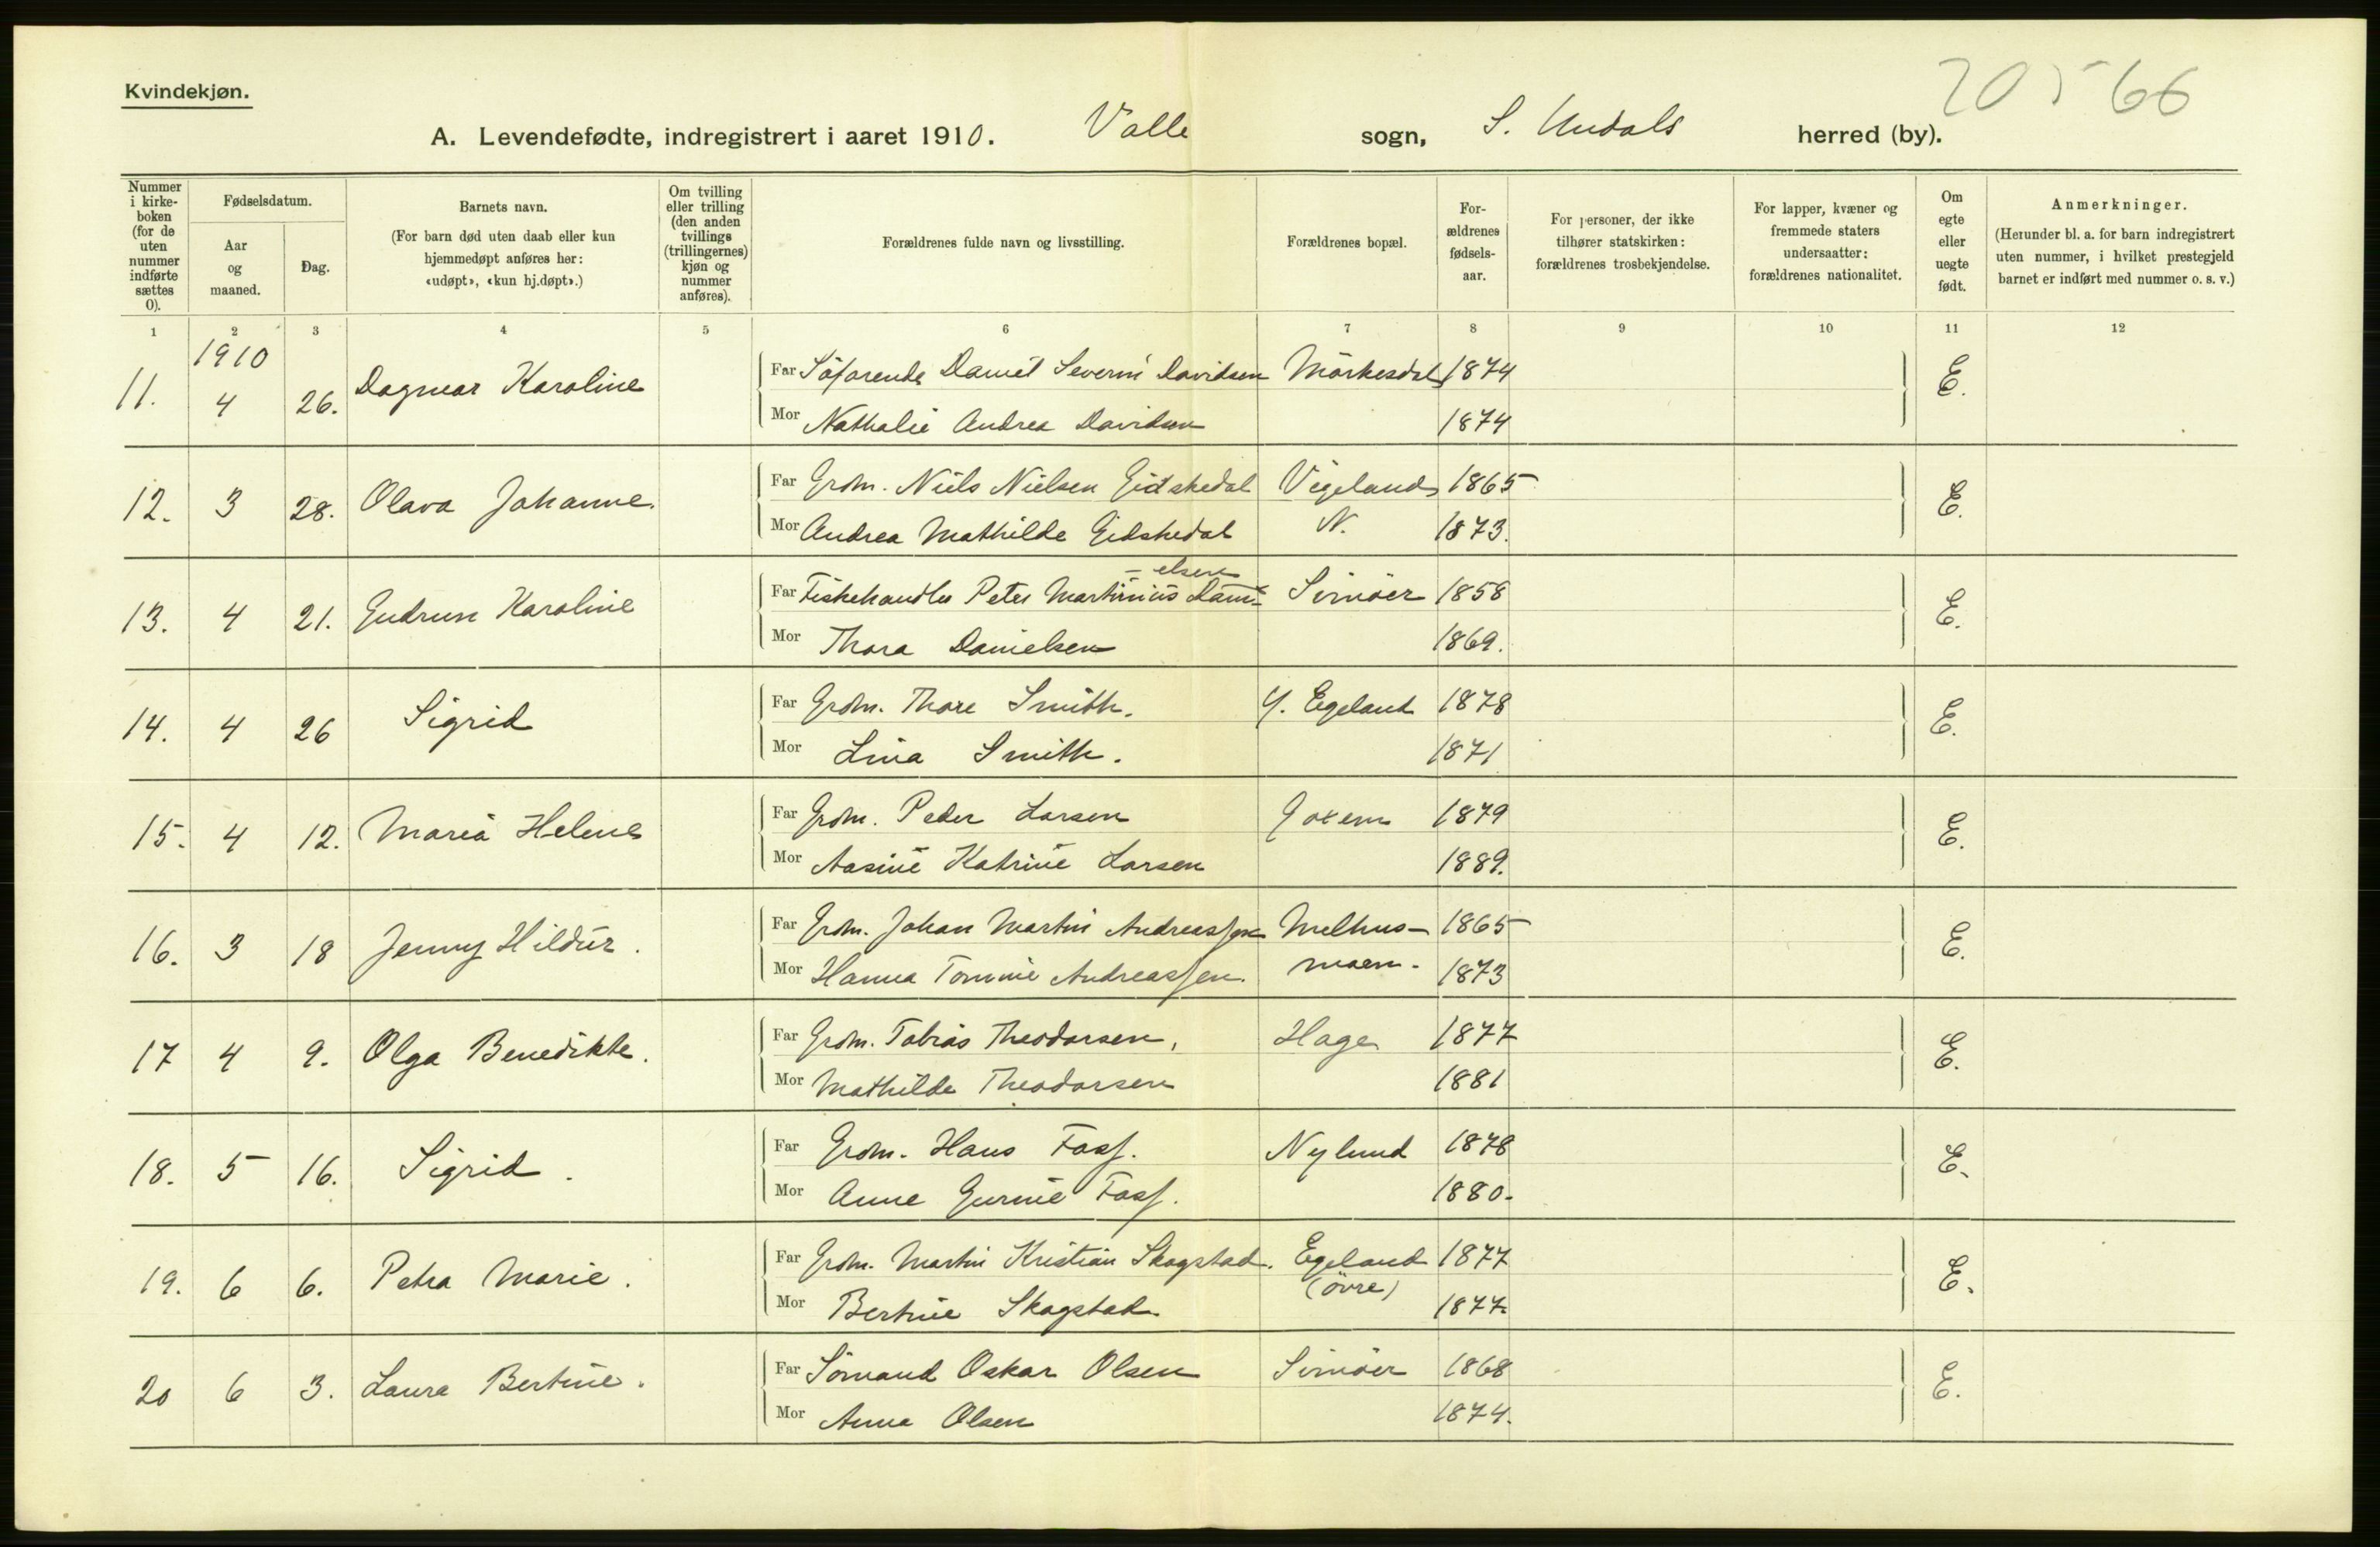 Kvindekjøn.
20566
A. Levendefødte, indregistrert i aaret 1910. Valle sogn, S. Undals herred (by).
Nummer i kirkeboken (for de uten nummer indførte sættes 0).
Fødselsdatum.
Aar og maaned.
Dag.
Barnets navn.
(For barn død uten daab eller kun hjemmedøpt anføres her: «udøpt», «kun hj.døpt».)
Om tvilling eller trilling (den anden tvillings (trillingernes) kjøn og nummer anføres).
Forældrenes fulde navn og livsstilling.
Forældrenes bopæl.
Forældrenes fødselsaar.
For personer, der ikke tilhører statskirken: forældrenes trosbekjendelse.
For lapper, kvæner og fremmede staters undersaatter: forældrenes nationalitet.
Om egte eller uegte født.
Anmerkninger.
(Herunder bl. a. for barn indregistrert uten nummer, i hvilket prestegjeld barnet er indført med nummer o. s. v.)
1 2 3 4 5 6 7 8 9 10 11 12
1910
11. 4 26. Dagmar Karoline Far Söfarende Daniel Severin Davidsen Mörkesdal 1874 E.
Mor Nathalie Andrea Davidsen 1874
12. 3 28. Olava Johanne. Far Grdm. Niels Nielsen Eidskedal Vigeland 1865 E.
Mor Andrea Mathilde Eidskedal N. 1873.
13. 4 21. Gudrun Karoline Far Fiskehandler Peter Martinius Dani-elsen Svinöer 1858 E.
Mor Thora Danielsen 1869.
14. 4 26 Sigrid Far Grdm. Thore Smith. Y. Egeland 1878 E.
Mor Lina Smith. 1871
15. 4 12. Maria Helene Far Grdm. Peder Larsen 1879 E.
Mor Aasine Katrine Larsen 1889.
16. 3 18 Jenny Hildur. Far Grdm. Johan Martin Andreassen Melhus- 1865 E.
Mor Hanna Tomine Andreassen. moen. 1873
17 4 9. Olga Benedikte. Far Grdm. Tobias Theodorsen, Hage 1877 E.
Mor Mathilde Theodorsen 1881
18. 5 16. Sigrid. Far Grdm. Hans Foss. Nylund 1878 E.
Mor Anne Gurine Foss. 1880.
19. 6 6. Petra Marie. Far Grdm. Martin Kristian Skogstad. Egeland 1877 E.
Mor Bertine Skogstad. (övre) 1877.
20 6 3. Laura Bertine. Far Sömand Oskar Olsen Svinöer 1868 E.
Mor Anna Olsen 1874.